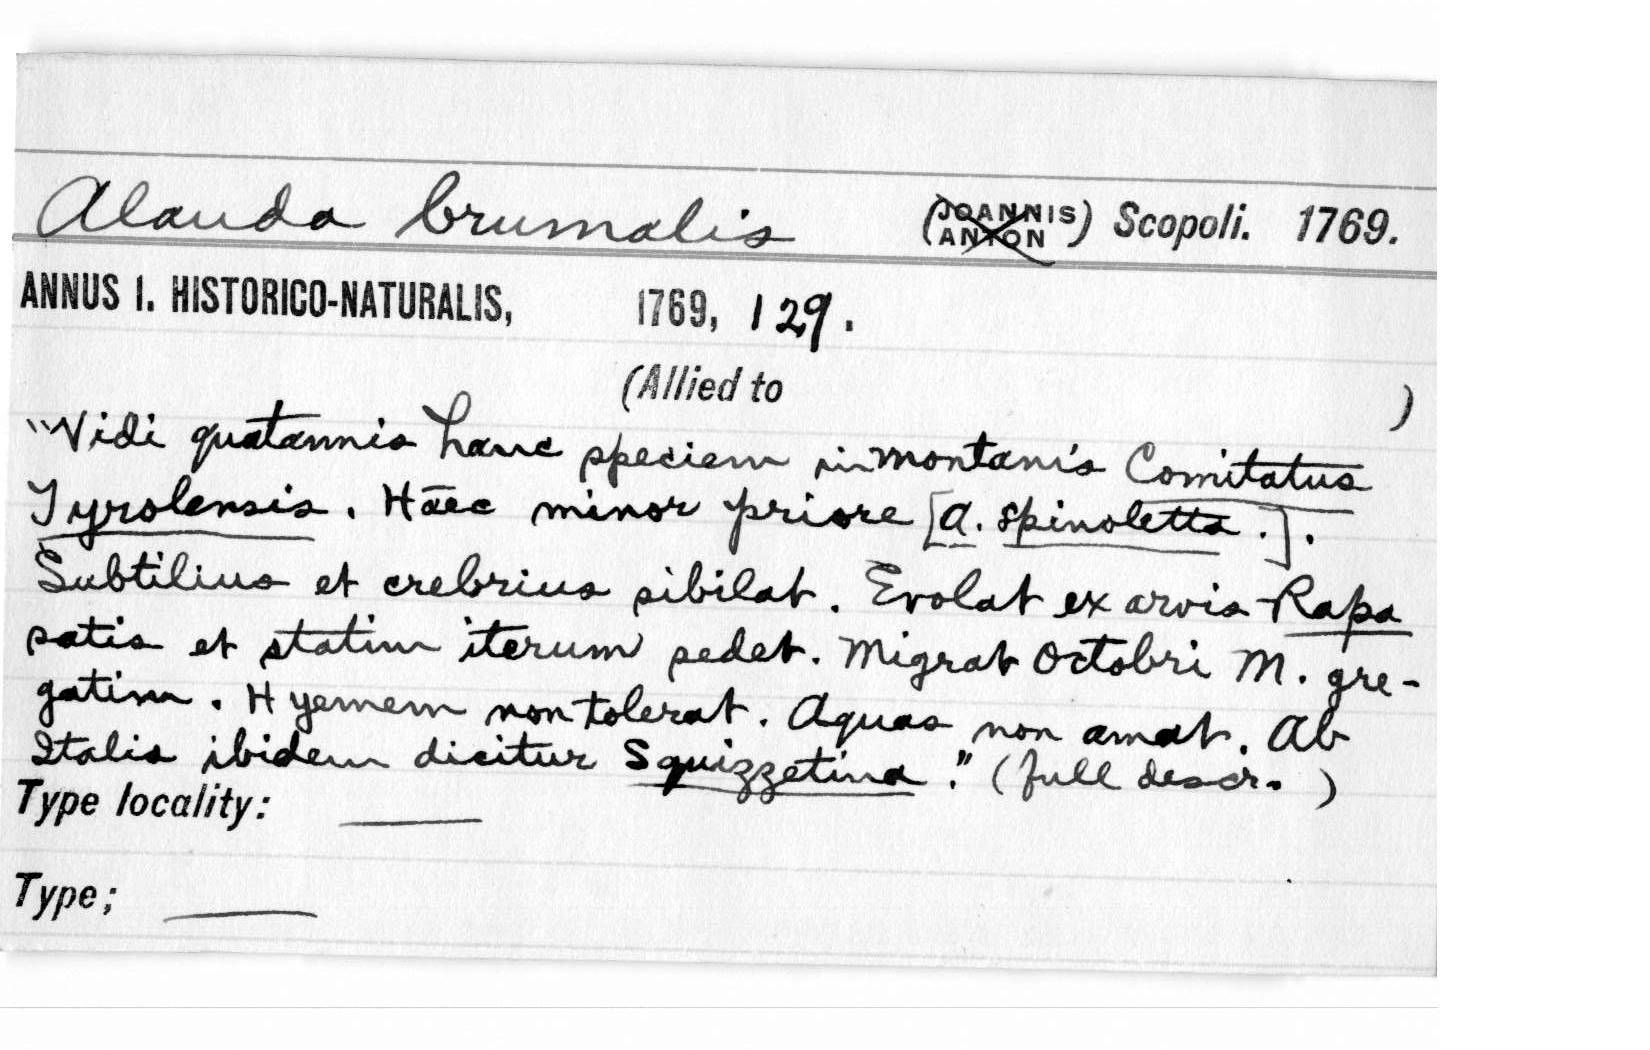 Alauda brumalis (JOANNIS ANTON) Scopoli. 1769.
ANNUS I. HISTORICO-NATURALIS, 1769, 129.
(Allied to )
"Vidi quatannis hanc speciem in montanis Comitatus
Tyrolensis. Haec minor priore [A. spinoletta.].
Subtilius et crebrius sibilat. Evolat ex arvis Rapa
satis et statim iterum sedet. Migrat Octobri M. gre-
gatim. Hyemem non tolerat. Aquas non amat. Ab
Italis ibidem dicitur Squizzetina." (full descr. )
Type locality: ____
Type; ____